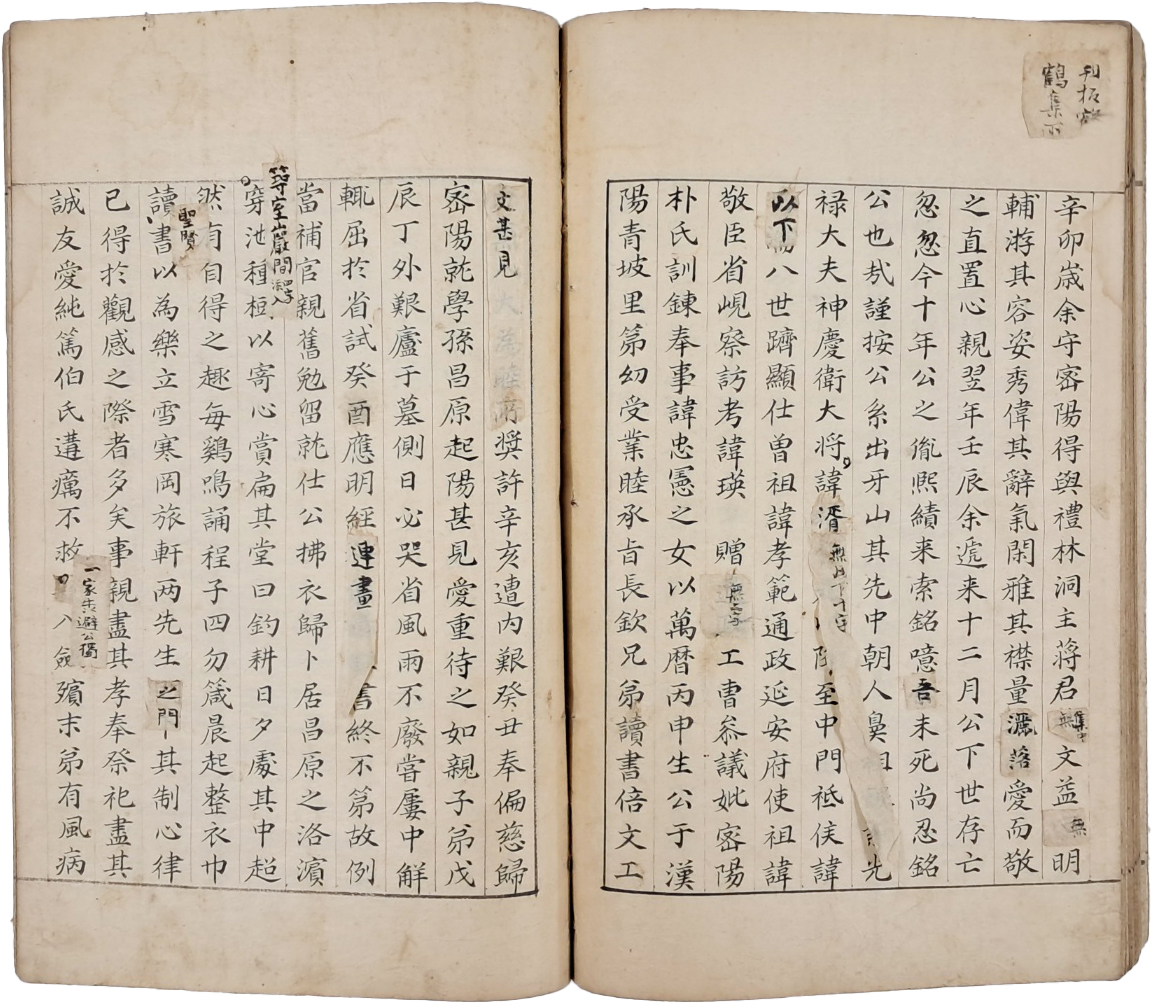 刊板
鶴集
辛卯歲余守密陽得與禮林洞主蔣君無文益無明
輔游其容姿秀偉其辭氣閑雅其襟量灑落愛而敬
之直置心親翌年壬辰余遞来十二月公下世存亡
忽忽今十年公之胤熙績来索銘噫吾未死尚忍銘
公也㢤謹按公系出牙山其先中朝人鼻祖先
禄大夫神慶衛大将諱濵無此下十字至中門祗侯諱
以下八世躋顯仕曽祖諱孝範通政延安府使祖諱
敬臣省峴察訪考諱瑛贈無工曺叅議妣密陽
朴氏訓鍊奉事諱忠憲之女以萬曆丙申生公于漢
陽青坡里第㓜受業睦承旨長欽兄弟讀書倍文工
文甚見奬許辛亥遭内艱癸丑奉偏慈歸
密陽就學孫昌原起陽甚見愛重待之如親子弟戊
辰丁外艱廬于墓側日必哭省風雨不廢嘗屢中觧
輒屈於省試癸酉應明經連畫書終不第故例
當補官親舊勉留就仕公拂衣歸卜居昌原之洛濵
築室巖間
穿池種樹以寄心賞扁其堂曰釣耕日夕處其中超
然有自得之趣每鷄鳴誦程子四勿箴晨起整衣巾
聖賢
讀書以為樂立雪寒岡旅軒两先生之門其制心律
已得於觀感之際者多矣事親盡其孝奉祭祀盡其
一家告避公獨
誠友愛純篤伯氏遘癘不救入斂殯末弟有風病